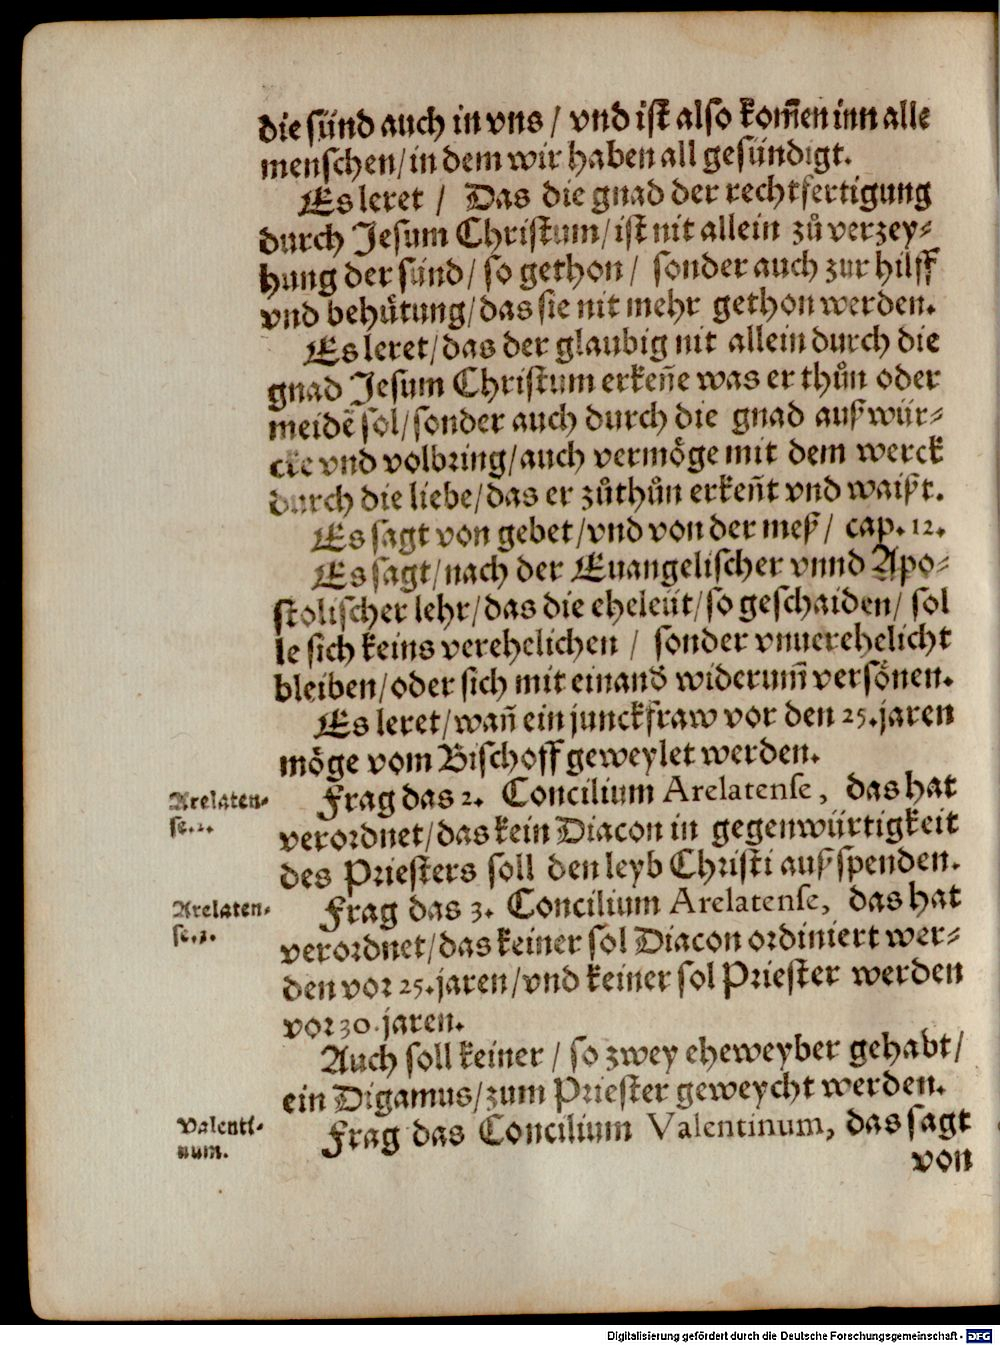 die sünd auch in vns / vnd ist also kom̃en inn alle
menschen / in dem wir haben all gesündigt.
Es leret / Das die gnad der rechtfertigung
durch Jesum Christum / ist nit allein zů verzey⸗
hung der sünd / so gethon / sonder auch zur hilff
vnd behůtung / das sie nit mehr gethon werden.
Es leret / das der glaubig nit allein durch die
gnad Jesum Christum erkeñe was er thůn oder
meidẽ sol / sonder auch durch die gnad auß wür⸗
cke vnd volbring / auch vermöge mit dem werck
durch die liebe / das er zůthůn erkeñt vnd waißt.
Es sagt von gebet / vnd von der meß / cap. 12.
Es sagt / nach der Euangelischer vnnd Apo⸗
stolischer lehr / das die eheleüt / so geschaiden / sol
le sich keins verehelichen / sonder vnuerehelicht
bleiben / oder sich mit einand̕ widerum̃ versönen.
Es leret / wañ ein junckfraw vor den 25. jaren
möge vom Bischoff geweylet werden.
Arelaten⸗
se. 2.
Frag das 2. Concilium Arelatense, das hat
verordnet / das kein Diacon in gegenwürtigkeit
des Priesters soll den leyb Christi auß spenden.
Arelaten⸗
se. 3.
Frag das 3. Concilium Arelatense, das hat
verordnet / das keiner sol Diacon ordiniert wer⸗
den vor 25. jaren / vnd keiner sol Priester werden
vor 30. jaren.
Auch soll keiner / so zwey eheweyber gehabt /
ein Digamus / zum Priester geweycht werden.
Valenti⸗
num.
Frag das Concilium Valentinum, das sagt
von
Digitalisierung gefördert durch die Deutsche Forschungsgemeinschaft - DFG